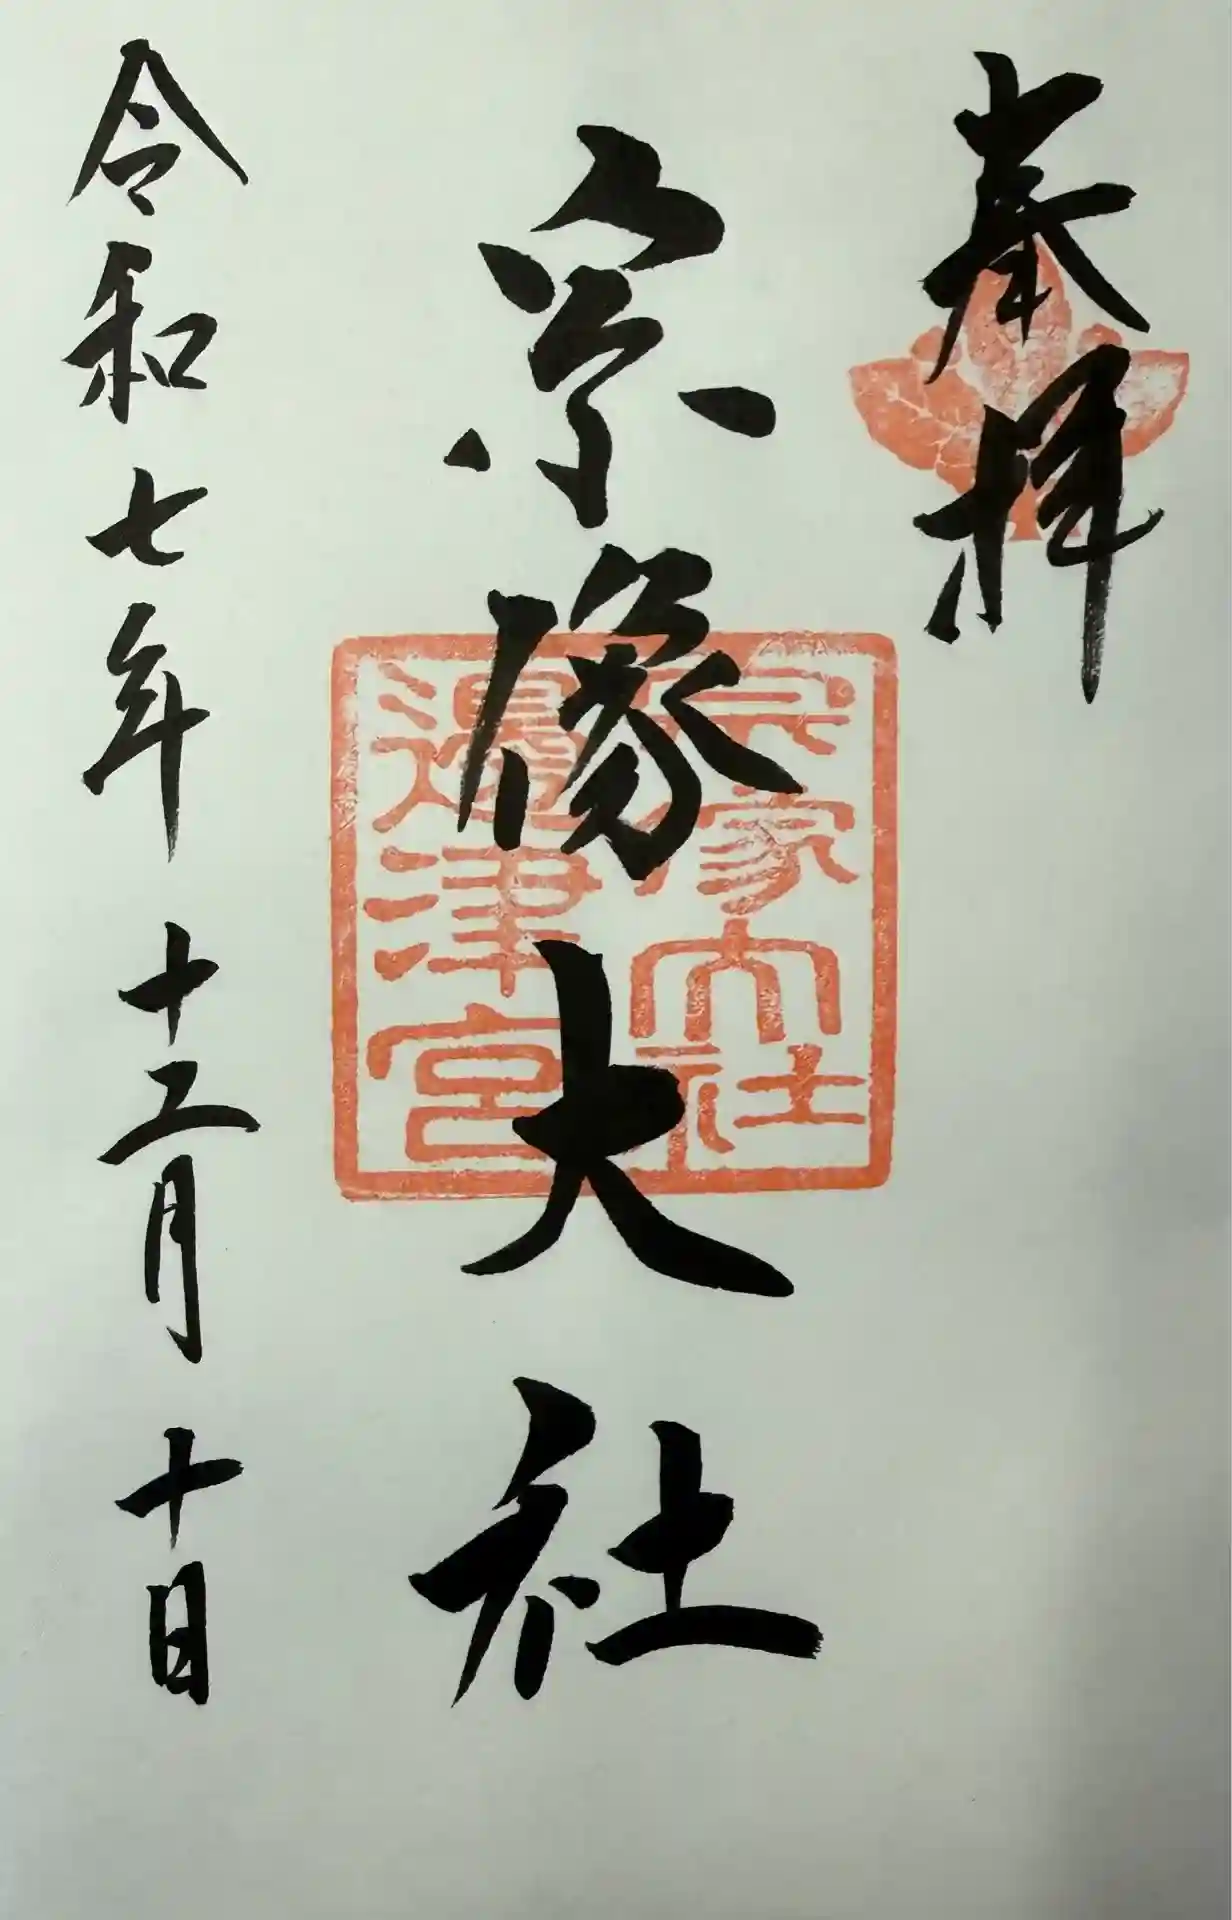 奉拝
宗像大社
大社
邊津宮
令和七年十二月十日